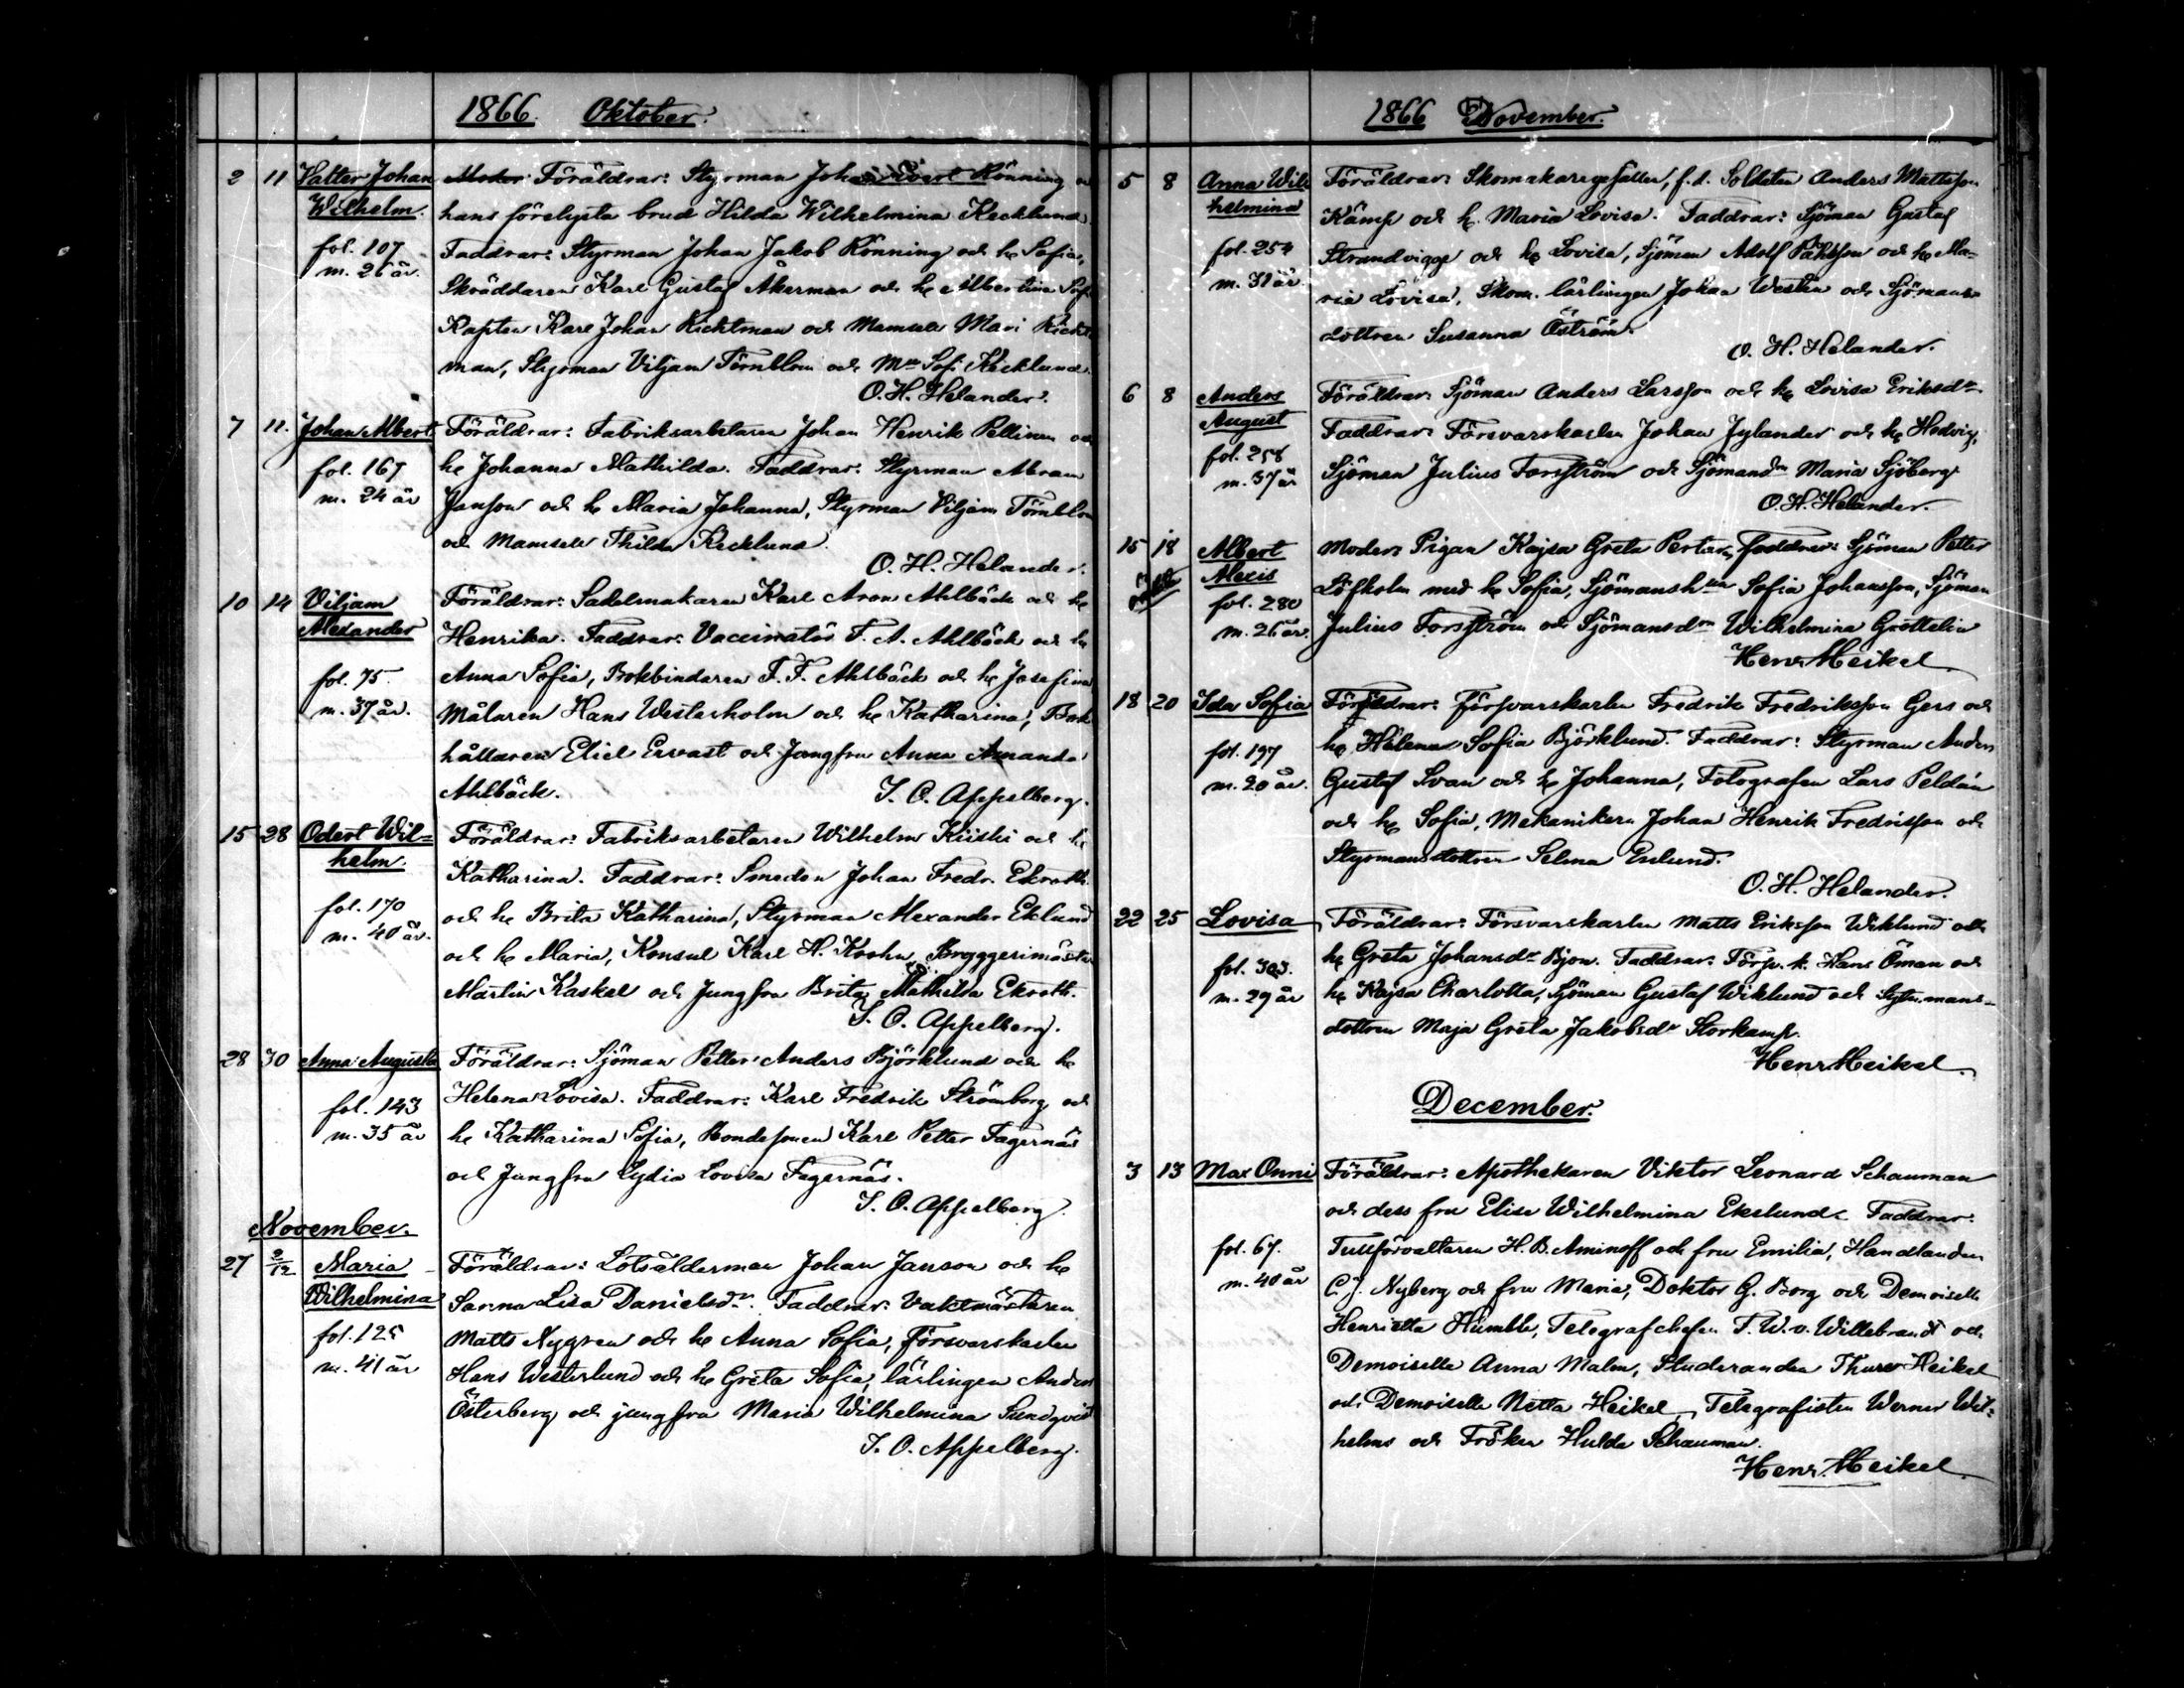 1866. Oktober.
2 11 Valter Johan Moder: Föräldrar: Styrman Johan Evert Könning
Wilhelm. hans förelysta brud Hilda Wilhelmina Kecklund.
fol. 107 Faddrar: Styrman Johan Jakob Könning och h. Sofia,
m. 26 år. Skräddaren Karl Gustaf Åkerman och h. Albertina Sof
Kapten Karl Johan Richtman och Mamsell Mari Richt
man, Styrman Viljam Törnblom och Mll Sofi Kecklund.
O. H. Helander.
7 11. Johan Albert Föräldrar: Fabriksarbetaren Johan Henrik Pellinen och
fol. 167 h. Johanna Mathilda. Faddrar: Styrman Abram
m. 24 år Janson och h. Maria Johanna, Styrman Viljam Törnblom
och Mamsell Thilda Kecklund.
O. H. Helander.
10 14 Viljam Föräldrar: Sadelmakaren Karl Aron Ahlbäck och h.
Alexander Henrika. Faddrar: Vaccinatör F. A. Ahlbäck och h.
Anna Sofia, Bokbindaren F. F. Ahlbäck och h. Josefina
fol. 75. Målaren Hans Westerholm och h. Katharina, Bok
m. 37 år. hållaren Eliel Ervast och Jungfru Anna Amanda
Ahlbäck. I. O. Appelberg.
15 28 Odert Wil= Föräldrar: Fabriksarbetaren Wilhelm Kiiski och h.
helm. Katharina. Faddrar: Smeden Johan Fredr. Ekroth
fol. 170 och h. Brita Katharina, Styrman Alexander Eklund
m. 40 år. och h. Maria, Konsul Karl H. Krohn, Bryggerimästa
Martin Kaskel och Jungfru Brita Mathilda Ekroth.
I. O. Appelberg.
28 30 Anna Augusta Föräldrar: Sjöman Petter Anders Björklund och h.
fol. 143 Helena Lovisa. Faddrar: Karl Fredrik Strömborg och
m. 35 år h. Katharina Sofia, Bondesonen Karl Petter Fagernäs
och Jungfru Lydia Lovisa Fagernäs.
I. O. Appelberg.
November.
27 2/12 Maria Föräldrar: Lotsålderman Johan Janson och h.
Wilhelmina Sanna Lisa Danielsdr. Faddrar: Vaktmästaren
fol. 125 Matts Nygren och h. Anna Sofia, Försvarskarlen
m. 41 år Hans Westerlund och h. Greta Sofia, lärlingen Anders
Österberg och jungfru Maria Wilhelmina Sundqvist
I. O. Appelberg.
1866 November.
5 8 Anna Wil Föräldrar: Skomakaregesällen, f.d. Soldaten Anders Mattsson
helmina Kämp och h. Maria Lovisa. Faddrar: Sjöman Gustaf
fol. 254 Strandvigge och h. Lovisa, Sjöman Adolf Påhlsson och h. Ma-
m. 31 år. ria Lovisa, Skom. lärlingen Johan Westin och Sjömans
dottren Susanna Öström.
O. H. Helander.
6 8 Anders Föräldrar: Sjöman Anders Larsson och h. Lovisa Eriksdr.
August Faddrar: Försvarskarlen Johan Jylander och h. Hedvig,
fol. 258 Sjöman Julius Forsström och Sjömansdn Maria Sjöberg.
m. 37 år
O. H. Helander.
15 18 Albert Moder: Pigan Kajsa Greta Pertar, faddrar: Sjöman Petter
Alexis Löfholm med h. Sofia, Sjömansh Sofia Johansson, Sjöman
fol. 280 Julius Forsström och Sjömansdn Wilhelmina Grottelin
m. 26 år.
Henr. Heikel
18 20 Ida Sofia Föräldrar: Försvarskarlen Fredrik Fredriksson Gers och
fol. 197 h. Helena Sofia Björklund. Faddrar: Styrman Anders
m. 20 år. Gustaf Svan och h. Johanna, Fotografen Lars Peldán
och h. Sofia, Mekanikern Johan Henrik Fredriksson och
Styrmansdottren Selma Enlund.
O. H. Helander.
22 25 Lovisa Föräldrar: Försvarskarlen Matts Eriksson Wiklund och
fol. 303. h. Greta Johansdr Bjon. Faddrar: Försv. k. Hans Öman och
m. 29 år h. Kajsa Charlotta, Sjöman Gustaf Wiklund och Sytn.mans-
dottren Maja Greta Jakobsdr Storkamp.
Henr. Heikel.
December.
3 13 Max Onni Föräldrar: Apothekaren Viktor Leonard Schauman
och dess fru Elise Wilhelmina Ekelund. Faddrar:
fol. 67. Tullförvaltaren H. B. Aminoff och fru Emilia, Handlanden
m. 40 år C. J. Nyberg och fru Maria, Doktor G. Borg och Demoiselle
Henrietta Humble, Telegrafchefen F. W. v. Willebrandt och
Demoiselle Anna Malm, Studeranden Thure Heikel
och Demoiselle Netta Heikel, Telegrafisten Werner Wil=
helms och Fröken Hulda Schauman.
Henr. Heikel.